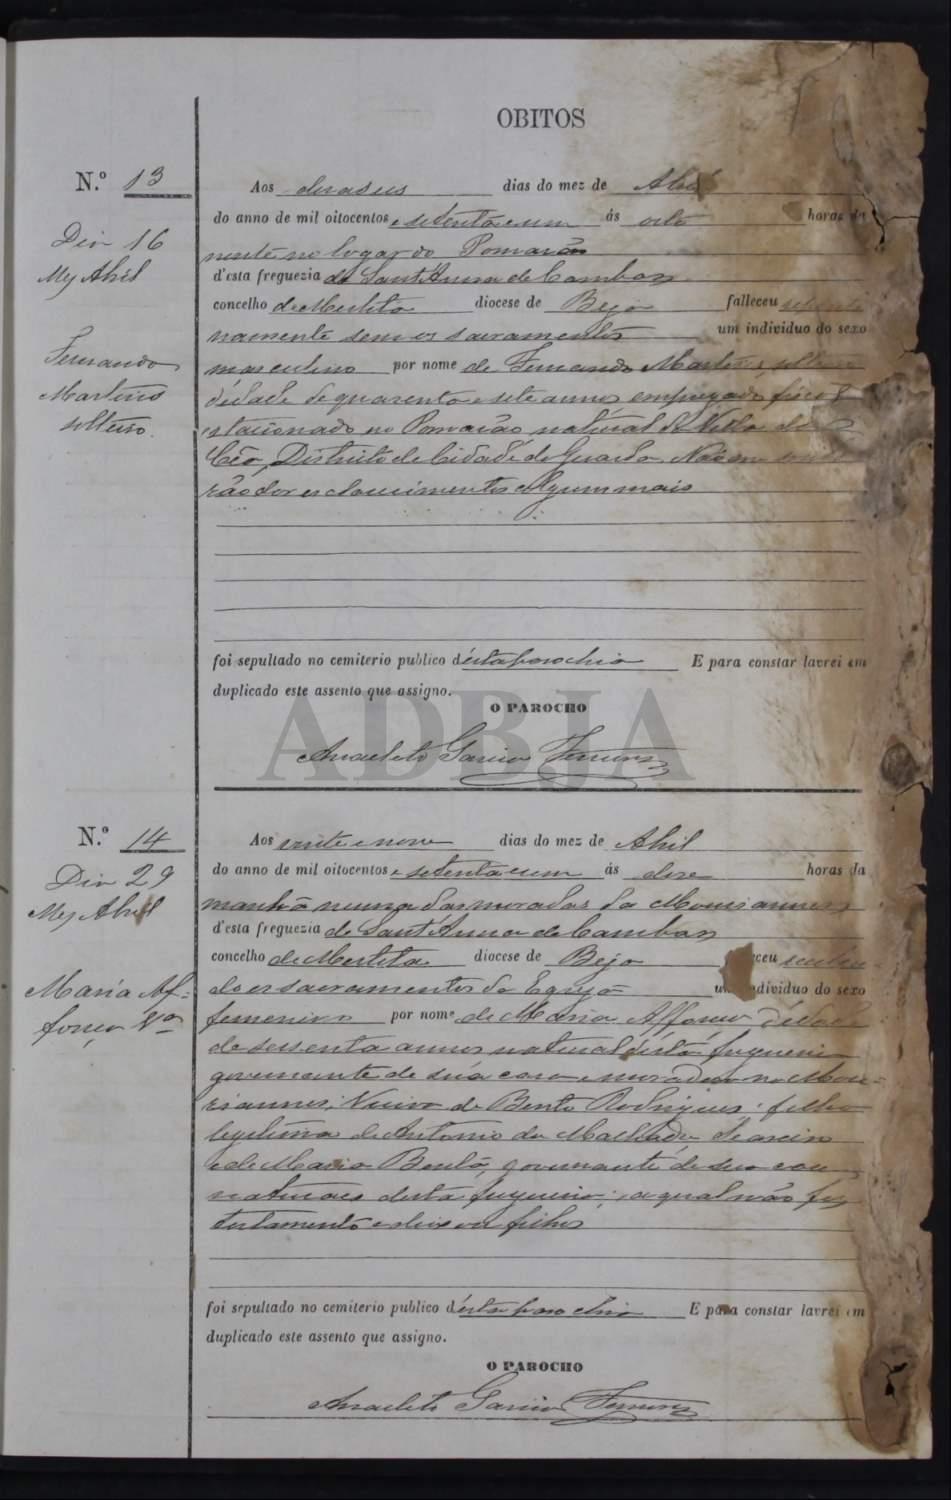 OBITOS
N.º 13
Dia 16
Mez Abril
Fernando
Martins
solteiro.
Aos deraseis dias do mez de Abril
do anno de mil oitocentos e setenta e um ás oito horas da
noute no logar do Pomarão
d'esta freguezia de Sant'Anna de Cambas
concelho de Mertola diocese de Beja falleceu
namente sem os sacramentos um individuo do sexo
masculino por nome de Fernando Martins, solteiro
d'edade de quarenta e sete annos empregado fiscal
estacionado no Pomarão, natural de Villa de
Cêa, Districto de Cidade de Guarda. Não me
rão dar esclarecimentos algum mais
foi sepultado no cemiterio publico d'esta parochia E para constar lavrei em
duplicado este assento que assigno.
O PAROCHO
Anacleto Garcia
ADBJA
N.º 14
Dia 29
Mez Abril
Maria Af-
fonço Vª
Aos vinte e nove dias do mez de Abril
do anno de mil oitocentos e setenta e um ás horas da
manhã n'uma das moradas da
d'esta freguezia de Sant'Anna de Cambas
concelho de Mertola diocese de Beja ceu receben-
do os sacramentos da Egreja um individuo do sexo
femenino por nome de Maria Affonço d'edade
de sessenta annos natural d'esta freguezia
governante de súa casa e moradora no
Viuva de Bento Rodrigues: filha
legitima de Antonio da
e de Maria Bento, governante de sua casa
naturaes desta freguezia; a qual não fez
testamento e deixou filhos
foi sepultado no cemiterio publico d'esta parochia E para constar lavrei em
duplicado este assento que assigno.
O PAROCHO
Anacleto Garcia